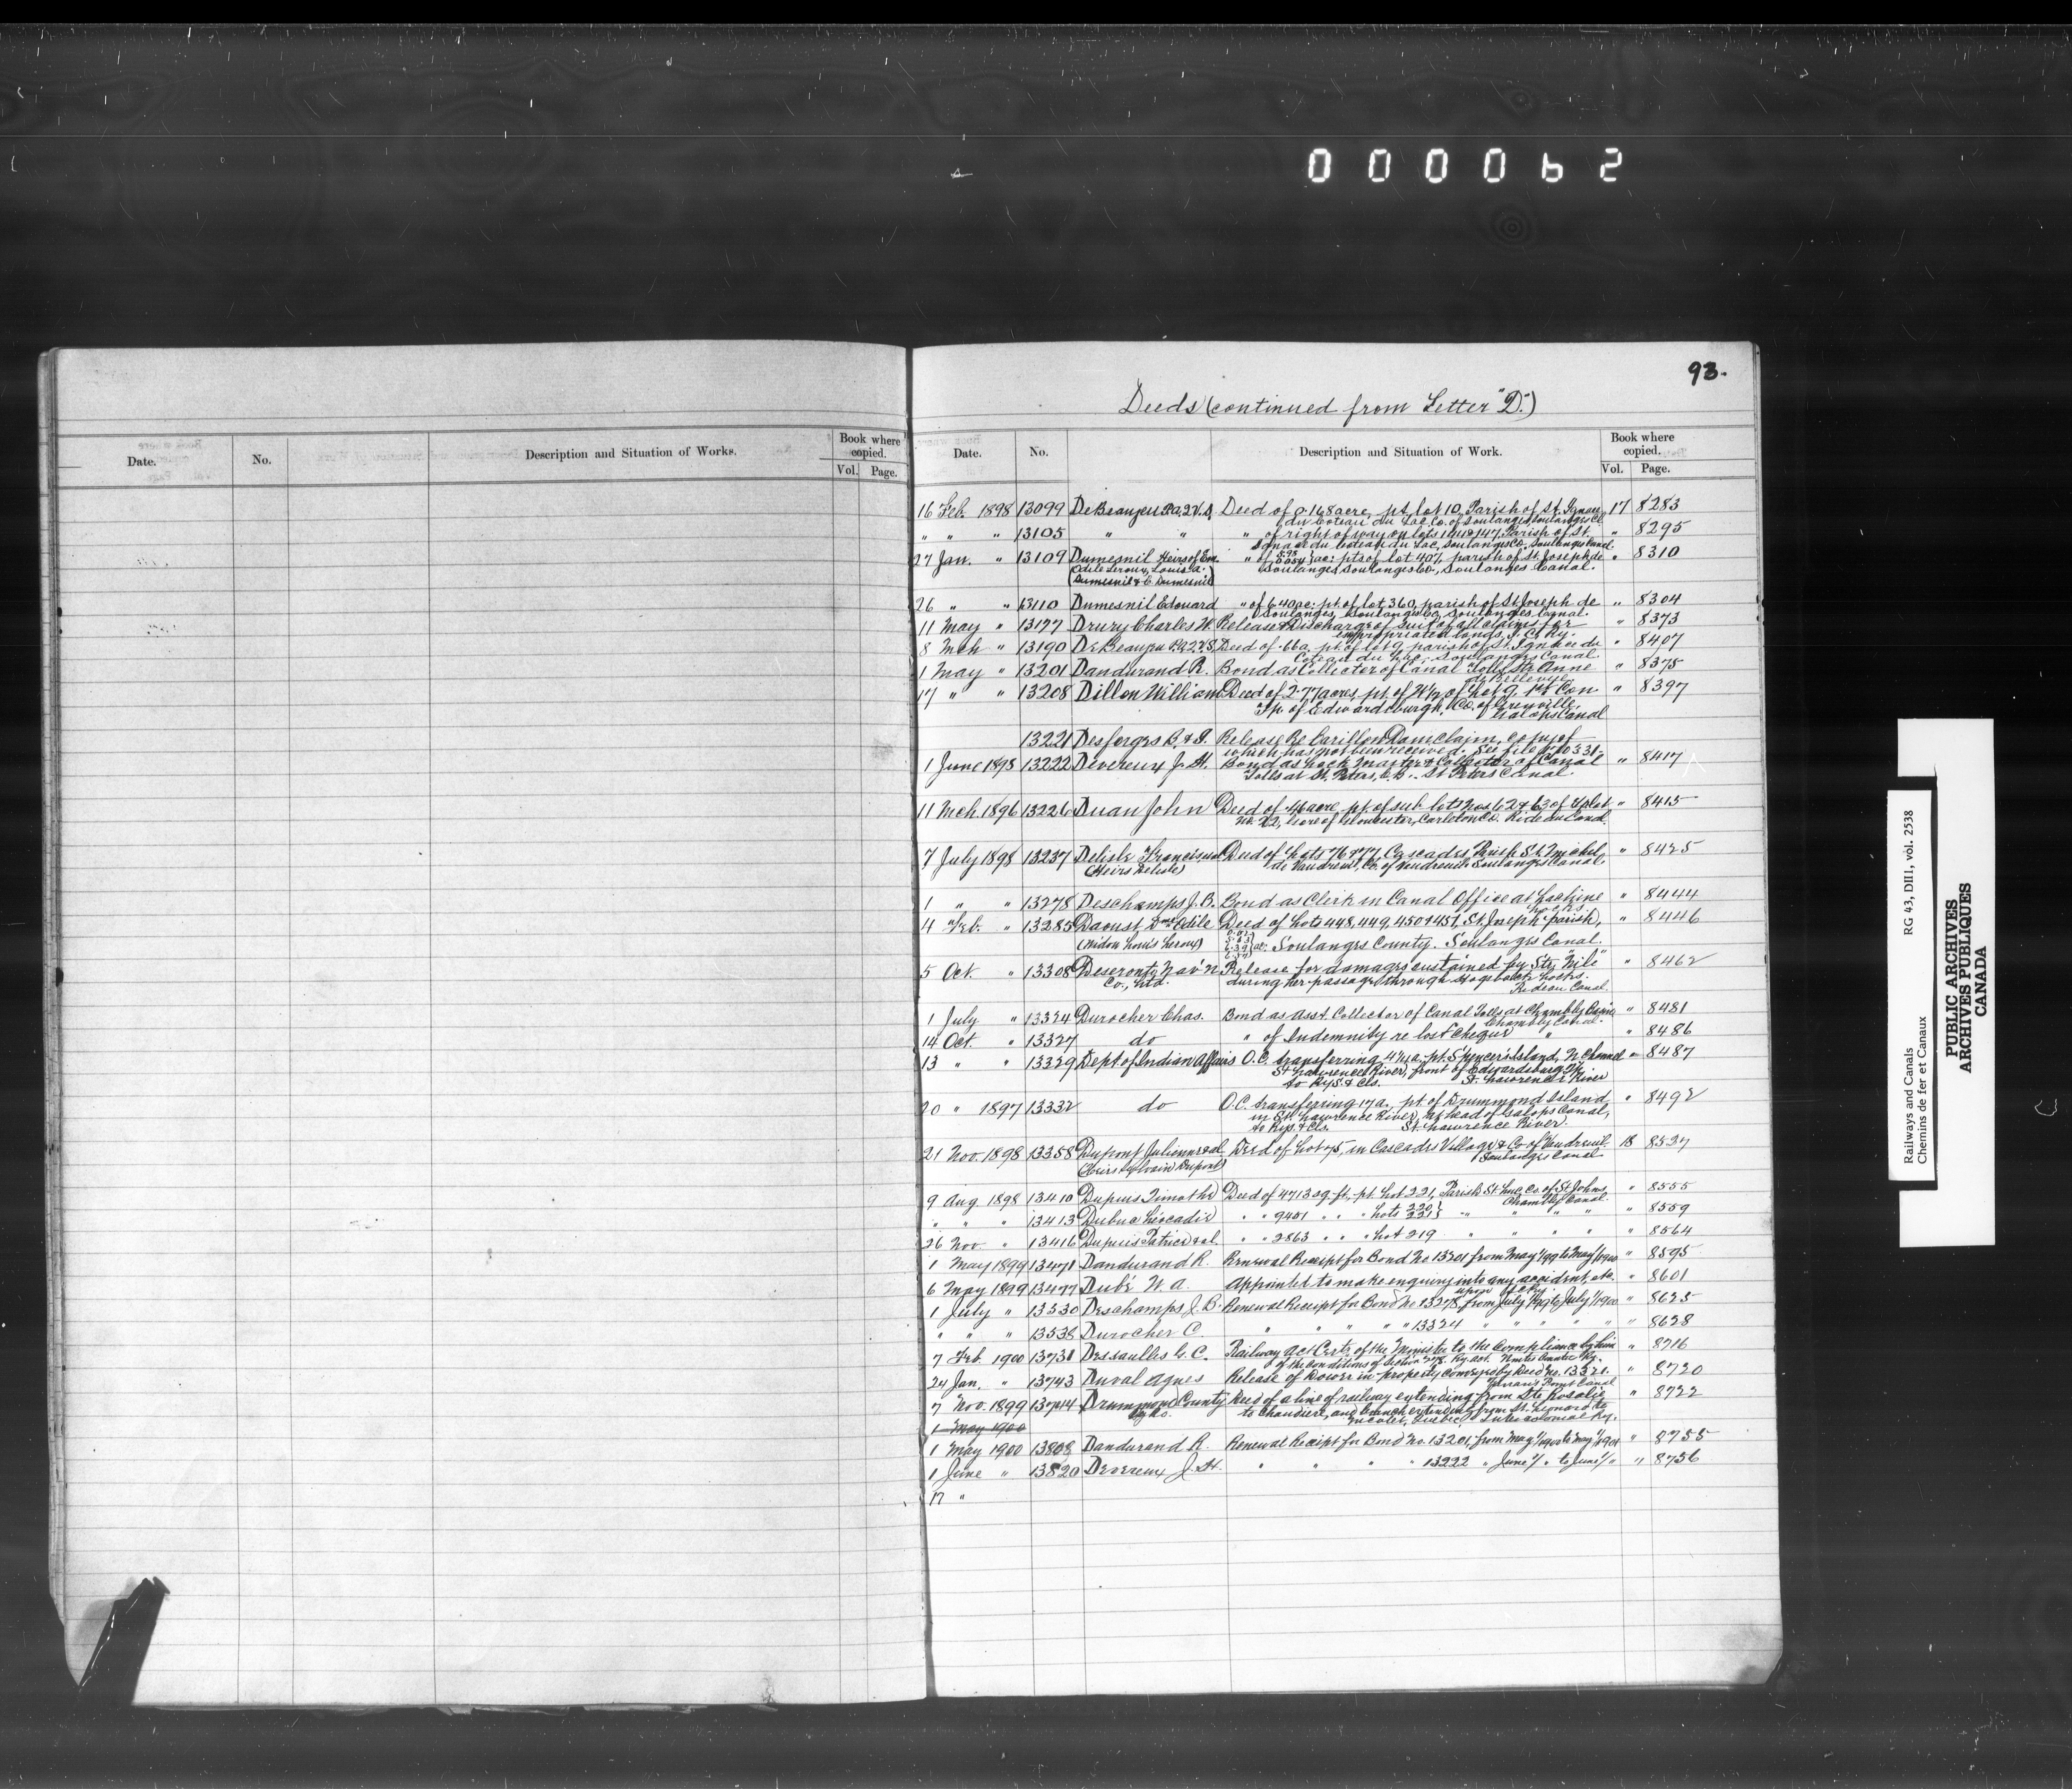 000062
93.
Deeds (continued from Letter "D.")
Date. No. Description and Situation of Works. Book where copied. Vol. Page.
Date. No. Description and Situation of Work. Book where copied. Vol. Page.
16 Feb. 1898 13099 DeBeaujeu R.A.2.V.S. Deed of 0.168 acre, pt. lot 10, Parish of St. Ignace 17 8283
du Coteau du Lac, Co. of Soulanges, Soulanges Cl.
" " " 13105 " " " of right of way on lots 141 & 147, Parish of St. " 8295
Ignace du Coteau du Lac, Soulanges Co., Soulanges Canal
27 Jan. " 13109 Dumesnil Heirs of Em. " of 5.98 ac: pts of lot 407, parish of St. Joseph de " 8310
(Odile Leroux, Louis A. Soulanges, Soulanges Co., Soulanges Canal.
Dumesnil & C. Dumesnil)
26 " " 13110 Dumesnil Edouard " of 6.40 ac: pt. of lot 360, parish of St Joseph de " 8304
Soulanges, Soulanges Co, Soulanges Canal.
11 May " 13177 Drury Charles W. Release & Discharge of suit of all claims for " 8373
expropriated lands, I. C. Ry.
8 Mch " 13190 DeBeaujeu R.A.2.V.S. Deed of .66 a. pt. of lot 9, parish of St. Ignace du " 8407
Coteau du Lac, Soulanges Canal.
1 May " 13201 Dandurand R. Bond as Collector of Canal Tolls, Ste Anne " 8375
de Bellevue
17 " " 13208 Dillon William Deed of 2.77 acres, pt. of W½ of Lot 9, 1st Con " 8397
Tp. of Edwardsburgh, Co. of Grenville.
Galops Canal
13221 Desforges B. & J. Release Re Carillon Dam claim, copy of
which has not been received. See file
1 June 1898 13222 Devereux J. H. Bond as Lock Master & Collector of Canal " 8417
Tolls at St. Peters, C.B. - St Peters Canal.
11 Mch. 1896 13226 Duan John Deed of .46 acre, pt. of sub lots Nos 62 & 63 of " 8415
No. 22, Gore of Gloucester, Carleton Co. Rideau Canal.
7 July 1898 13237 Delisle Francis Deed of Lots 76 & 77, Cascades, Parish St. Michel " 8425
(Heirs Delisle) de Vaudreuil, Co. of Vaudreuil. Soulanges Canal.
1 " " 13278 Deschamps J. B. Bond as Clerk in Canal Office at Lachine " 8444
Locks
4 Feb. " 13285 Daoust Dme Odile Deed of Lots 448, 449, 450 & 451, St Joseph parish, " 8446
(Widow Louis Leroux) Soulanges County. Soulanges Canal.
5 Oct. " 13308 Deseronto Nav'n Release for damages sustained by Str. "Nile" " 8462
Co., Ltd. during her passage through Hogsback Locks.
Rideau Canal.
1 July " 13324 Durocher Chas. Bond as Asst. Collector of Canal Tolls at Chambly Basin " 8481
Chambly Canal.
14 Oct. " 13327 do " of Indemnity re lost Cheque " " 8486
13 " " 13329 Dept of Indian Affairs O.C. transferring 4¼ a. pt. Spencer's Island, N. Channel " 8487
St Lawrence River, front of Edwardsburg Tp.
to Rys. & Cls. St. Lawrence River
20 " 1897 13332 do O.C. transferring 17 a., pt. of Drummond Island, " 8492
in St. Lawrence River, at head of Galops Canal,
to Rys. & Cls. St. Lawrence River.
21 Nov. 1898 13358 Dupont Julienne et al. Deed of Lot 75, in Cascades Village & Co of Vaudreuil 18 8537
(Heirs Sylvain Dupont) Soulanges Canal
9 Aug. 1898 13410 Dupuis Timothé Deed of 4713 sq. ft., pt. Lot 221, Parish St. Luc, Co. of St Johns " 8555
Chambly Canal.
" " " 13413 Dubuc Léocadie " " 9451 " " " Lots 220 } 221 } " " " " " 8559
26 Nov. " 13416 Dupuis Patrice et al " " 2863 " " " Lot 219 " " " " " 8564
1 May 1899 13471 Dandurand R. Renewal Receipt for Bond No 13201 from May 1/99 to May 1/1900 " 8595
6 May 1899 13477 Dubé W. A. Appointed to make enquiry into any accident, etc. " 8601
upon I.C. Ry.
1 July " 13530 Deschamps J. B. Renewal Receipt for Bond No 13278, from July 1/99 to July 1/1900 " 8625
" " " 13538 Durocher C. " " " " " 13324 " " " " " " 8628
7 Feb. 1900 13731 Dessaulles G. C. Railway Act Certs. of the Minister to the compliance by him " 8716
of the conditions of Section Ry. Act. Counties Ry.
24 Jan. " 13743 Duval Agnes Release of Dower in property conveyed by Deed No. 13321. " 8720
Farran's Point Canal
7 Nov. 1899 13744 Drummond County Deed of a line of railway extending from Ste Rosalie " 8722
Ry Co. to Chaudiere, and branch extending from St. Leonard to
1 May 1900 Nicolet, Quebec. Intercolonial Ry.
1 May 1900 13808 Dandurand R. Renewal Receipt for Bond No. 13201, from May 1/1900 to May 1/1901 " 8755
1 June " 13820 Devereux J. H. " " " " 13222 " June 1/ " to June 1/ " " 8756
17 "
Railways and Canals RG 43, DII1, vol. 2538
Chemins de fer et Canaux
PUBLIC ARCHIVES
ARCHIVES PUBLIQUES
CANADA